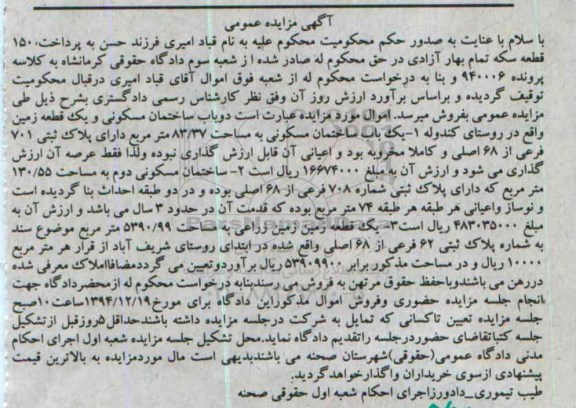 آگهی مزایده عمومی
با سلام با عنایت به صدور حکم محکومیت محکوم علیه به نام قباد امیری فرزند حسن به پرداخت، ۱۵۰
قطعه سکه تمام بهار آزادی در حق محکوم له صادر شده از شعبه سوم دادگاه حقوقی کرمانشاه به کلاسه
پرونده ۹۴۰۰۰۶ و بنا به درخواست محکوم له از شعبه فوق اموال آقای قباد امیری درقبال محکومیت
توقیف گردیده و براساس برآورد ارزش روز آن وفق نظر کارشناس رسمی دادگستری بشرح ذیل طی
مزایده عمومی بفروش میرسد. اموال مورد مزایده عبارت است دوباب ساختمان مسکونی و یک قطعه زمین
واقع در روستای کندوله ۱-یک باب ساختمان مسکونی به مساحت ۸۲/۳۷ متر مربع دارای پلاک ثبتی ۷۰۱
فرعی از ۶۸ اصلی و کاملا مخروبه بود و اعیانی آن قابل ارزش گذاری نبوده ولذا فقط عرصه آن ارزش
گذاری می شود و ارزش آن به مبلغ ۱۶۶۷۴۰۰۰ ریال است ۲- ساختمان مسکونی دوم به مساحت ۱۳۰/۵۵
متر مربع که دارای پلاک ثبتی شماره ۷۰۸ فرعی از ۶۸ اصلی بوده و در دو طبقه احداث بنا گردیده است
و نوساز واعیانی هر طبقه هر طبقه ۷۴ متر مربع بوده که قدمت آن در حدود ۳ سال می باشد و ارزش آن به
مبلغ ۴۸۳۰۳۵۰۰۰ ریال است۳- یک قطعه زمین زمین زراعی به مساحت ۵۳۹۰/۹۹ متر مربع موضوع سند
به شماره پلاک ثبتی ۶۲ فرعی از ۶۸ اصلی واقع شده در ابتدای روستای شریف آباد از قرار هر متر مربع
۱۰۰۰۰ ریال و در مساحت مذکور برابر ۵۳۹۰۹۹۰۰ ریال برآوردوتعیین می گرددمضافااملاک معرفی شده
دررهن می باشندوباحفظ حقوق مرتهن به فروش می رسندبنابه درخواست محکوم له ازمحضردادگاه جهت
باانجام جلسه مزایده حضوری وفروش اموال مذکوراین دادگاه برای مورخ۱۳۹۴/۱۲/۱۹ساعت۱۰صبح
جلسه مزایده تعیین تاکسانی که تمایل به شرکت درجلسه مزایده داشته باشندحداقل۵روزقبل ازتشکیل
جلسه کتباتقاضای حضوردرجلسه راتقدیم دادگاه نماید.محل تشکیل جلسه مزایده شعبه اول اجرای احکام
مدنی دادگاه عمومی(حقوقی)شهرستان صحنه می باشندبدیهی است مال موردمزایده به بالاترین قیمت
پیشنهادی ازسوی خریداران واگذارخواهدگردید.
طیب تیموری_دادورزاجرای احکام شعبه اول حقوقی صحنه